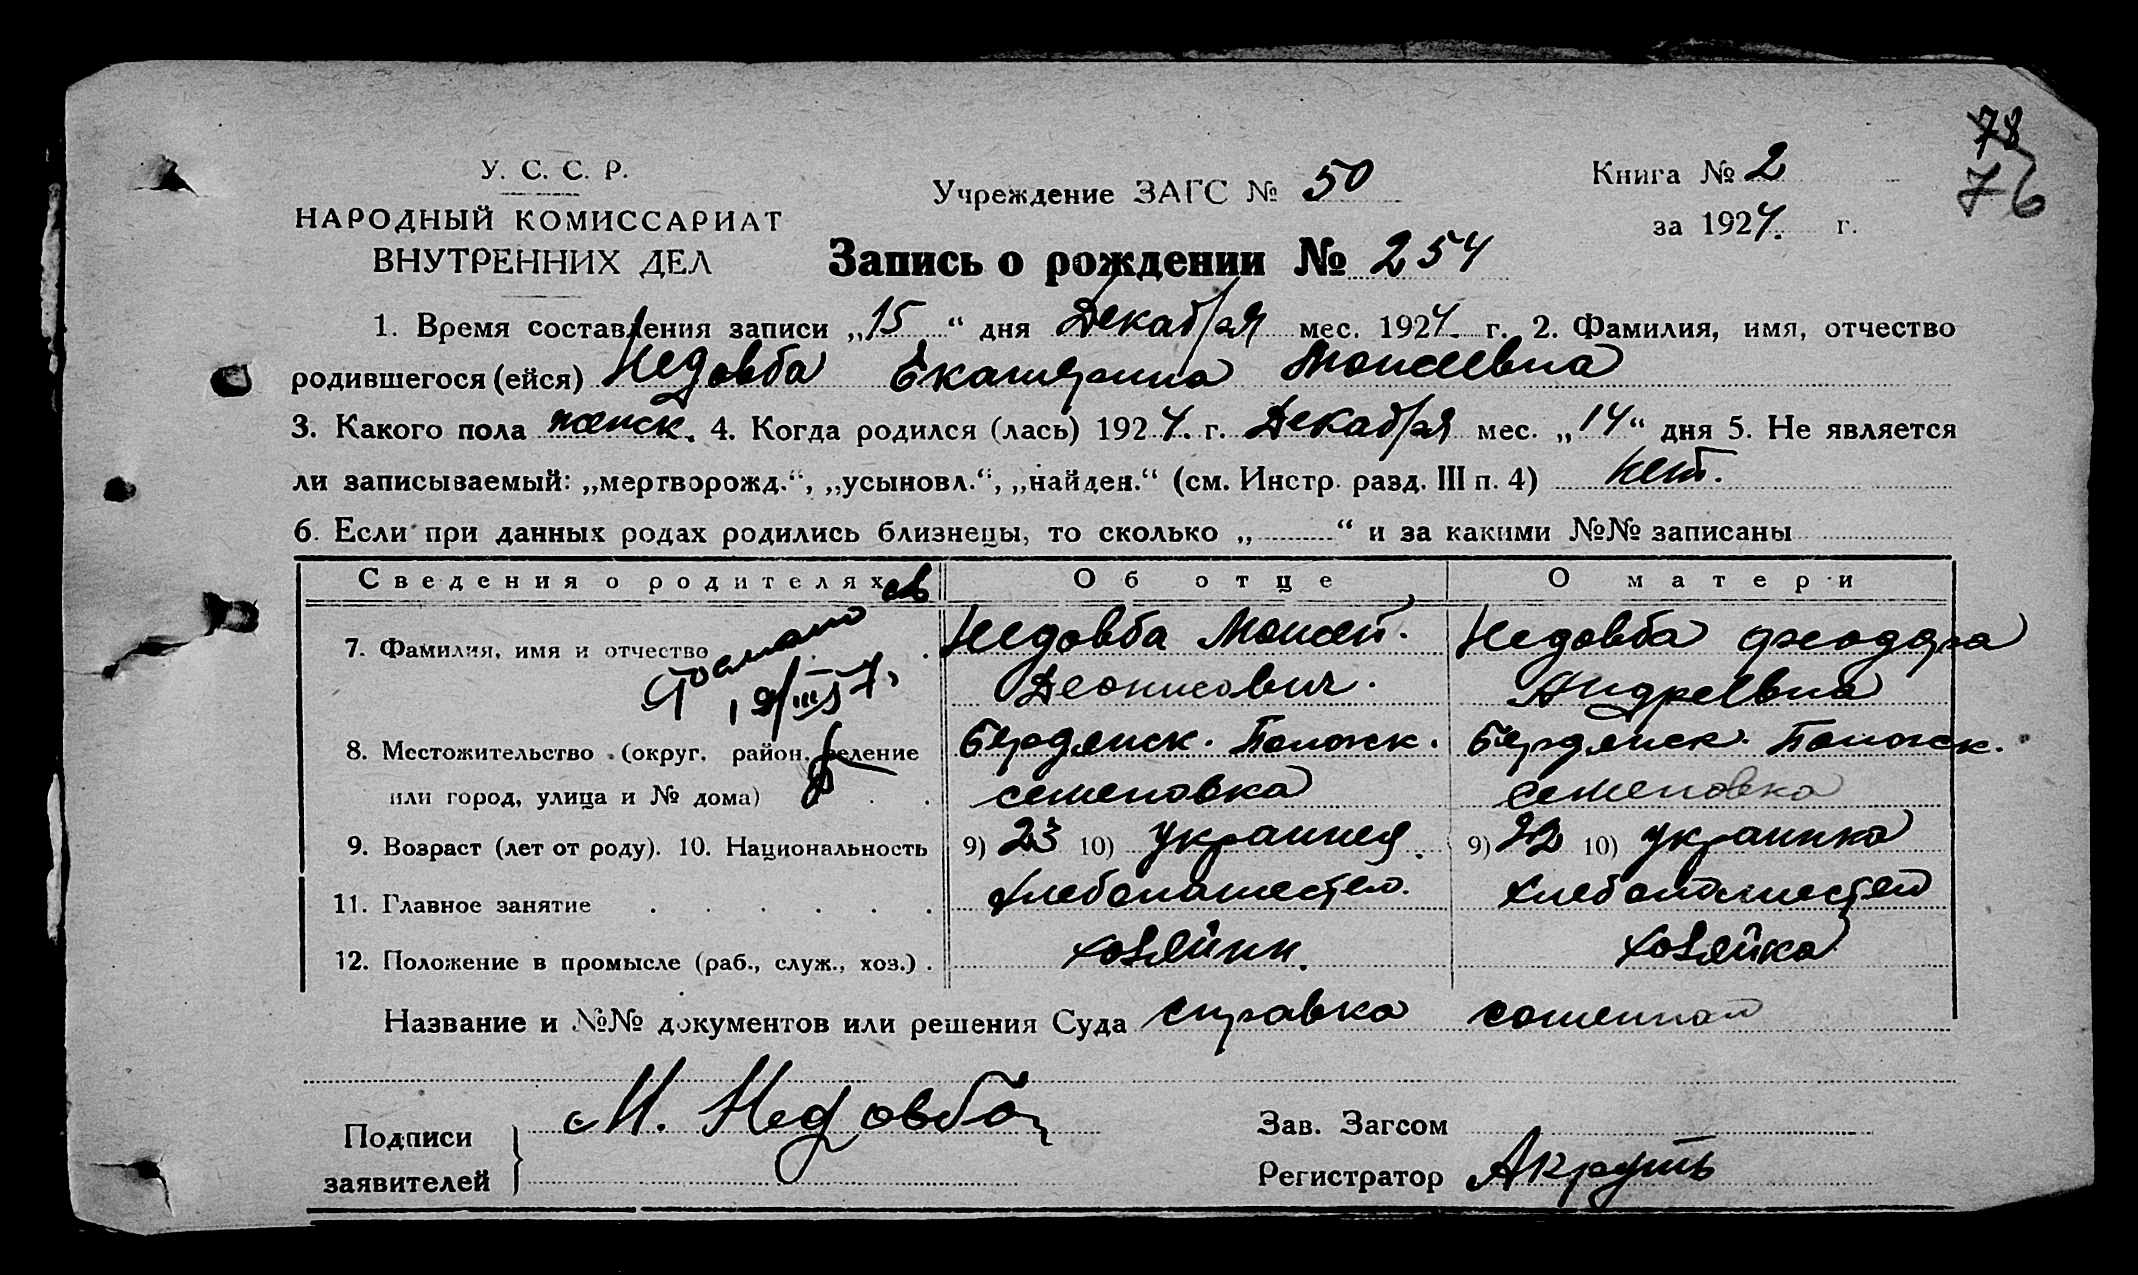 78
76
У. С. С. Р.
НАРОДНЫЙ КОМИССАРИАТ
ВНУТРЕННИХ ДЕЛ
Учреждение ЗАГС № 50
Книга № 2
за 1924. г.
Запись о рождении № 254
1. Время составления записи „15“ дня Декабря мес. 1924. г. 2. Фамилия, имя, отчество
родившегося (ейся) Недовба Екатерина Моисеевна
3. Какого пола женск. 4. Когда родился (лась) 1924. г. Декабря мес. „14“ дня 5. Не является
ли записываемый: „мертворожд.“, „усыновл.“, „найден.“ (см. Инстр. разд. III п. 4) нет.
6. Если при данных родах родились близнецы, то сколько „ “ и за какими №№ записаны
Сведения о родителях Об отце О матери
7. Фамилия, имя и отчество Недовба Моисей. Недовба
Деонисович. Андреевна
8. Местожительство (округ, район, селение Бердянск. Пологск. Бердянск. Пологск.
или город, улица и № дома) семеновка семеновка
9. Возраст (лет от роду). 10. Национальность 9) 23 10) украинец. 9) 22 10) украинка
11. Главное занятие хлебопашество. хлебопашество
12. Положение в промысле (раб., служ., хоз.) хозяйин. хозяйка
Название и №№ документов или решения Суда справка
Подписи
заявителей
М. Недовба
Зав. Загсом
Регистратор